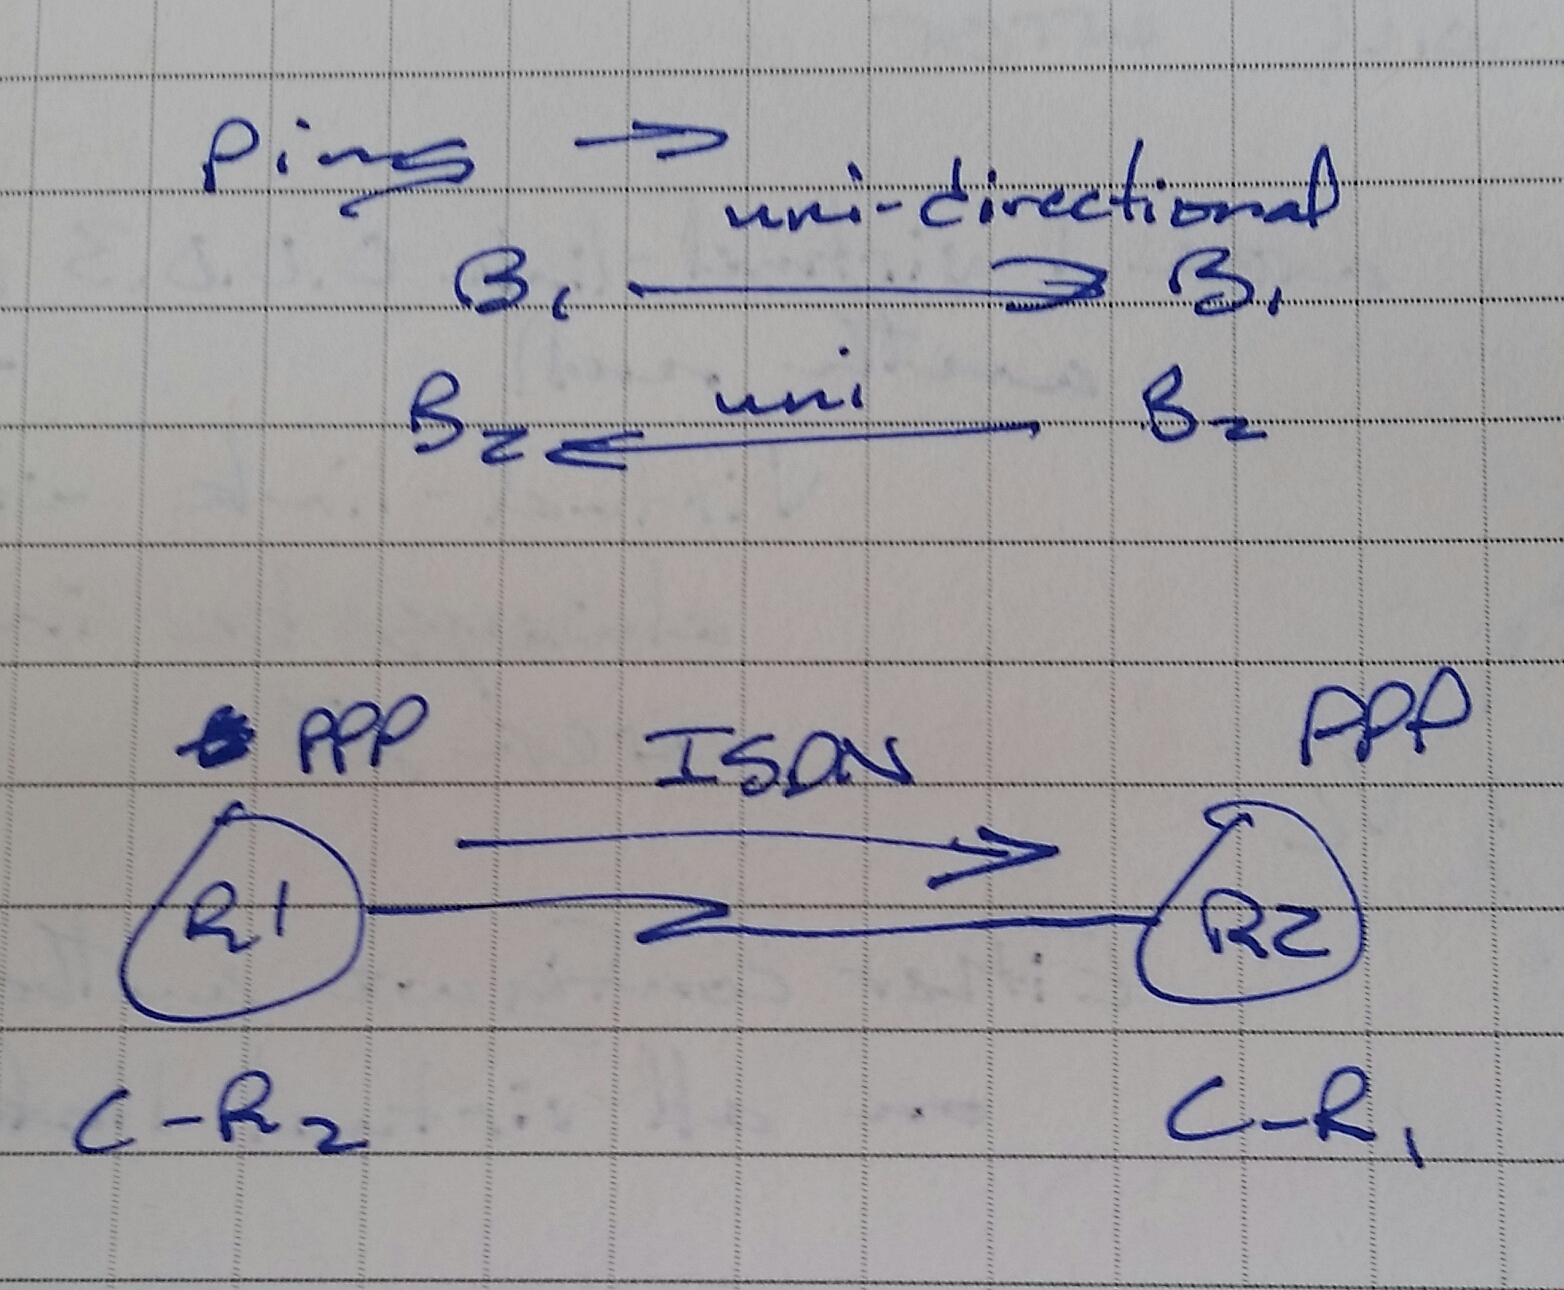 Pings →
uni-directional
B1 → B1
uni
B2 ← B2
PPP ISDN PPP
R1 → R2
C-R2 C-R1